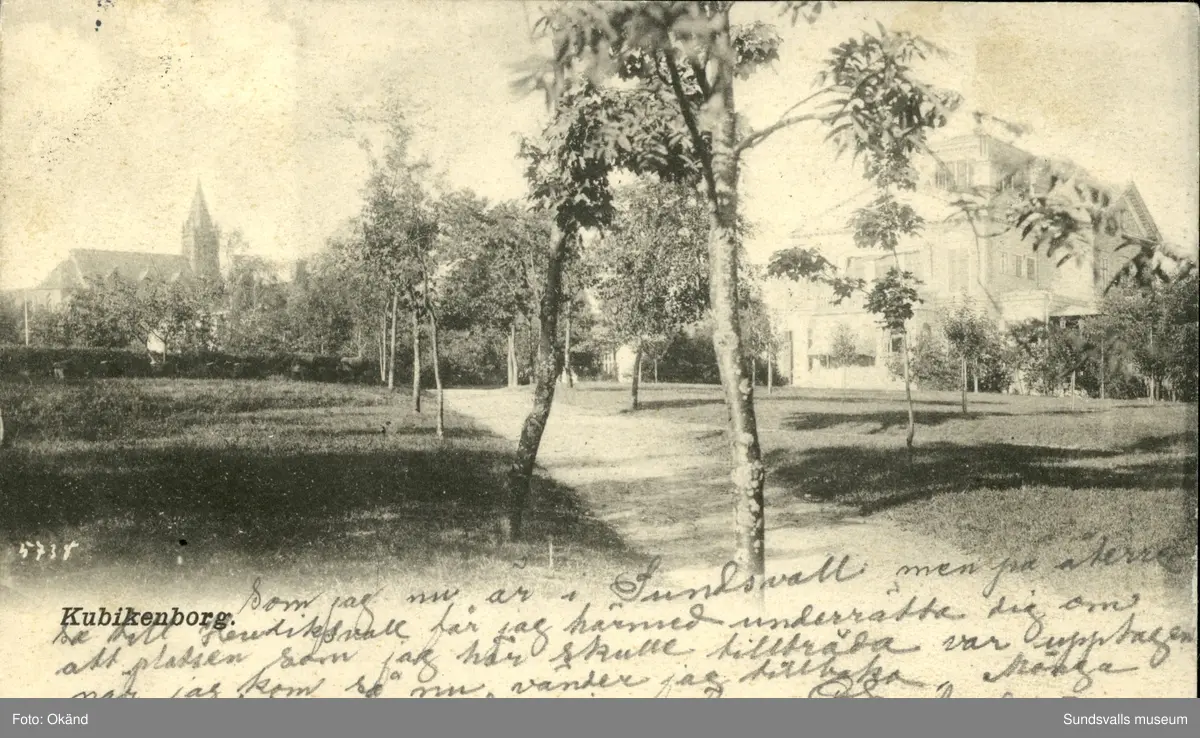 5738
Kubikenborg.
Som jag nu är i Sundsvall men på återre
sa till Hudiksvall får jag härmed underrätta dig om
att platsen som jag här skulle tillträda var upptagen
när jag kom så nu vänder jag tillbaka
Foto: Okänd
Sundsvalls museum